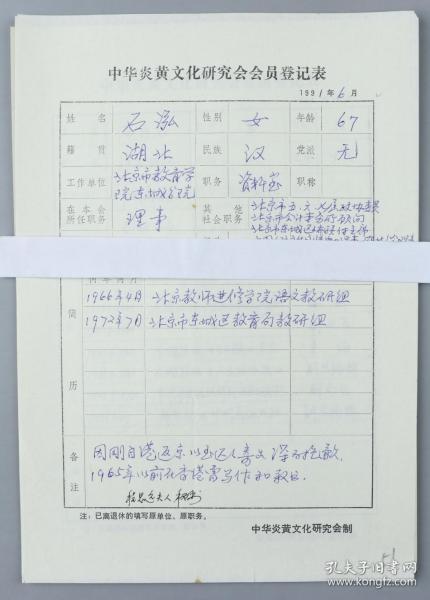 中华炎黄文化研究会会员登记表
1991年6月
姓名 石泓 性别 女 年龄 67
籍贯 湖北 民族 汉 党派 无
工作单位 北京市教育学院东城分院 职务 资料室 职称
在本会所任职务 理事 其他社会职务 北京市五、六、七届政协委员
北京市会计事务所顾问
简历
1966年4月 北京教师进修学院语文教研组
1972年7月 北京市东城区教育局教研组
备注
因刚自港返京
1965年以前在香港写作和教书
注:已离退休的填写原单位、原职务。
中华炎黄文化研究会制
51
孔夫子旧书网
www.kongfz.com